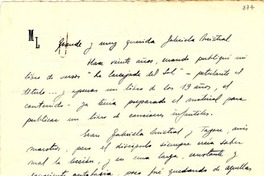 274
ML
Grande y muy querida Gabriela Mistral
Hace veinte años, cuando publiqué mi
libro de versos "La carcajada del Sol" - petulante el
título... y apenas un libro de los 19 años, el
contenido - ya tenía preparado el material para
publicar un libro de canciones infantiles.
Eran Gabriela Mistral y Tagore, mis
maestros, pero el discípulo siempre
mal la lección, y en una larga, constante y
fue quedando de aquellas